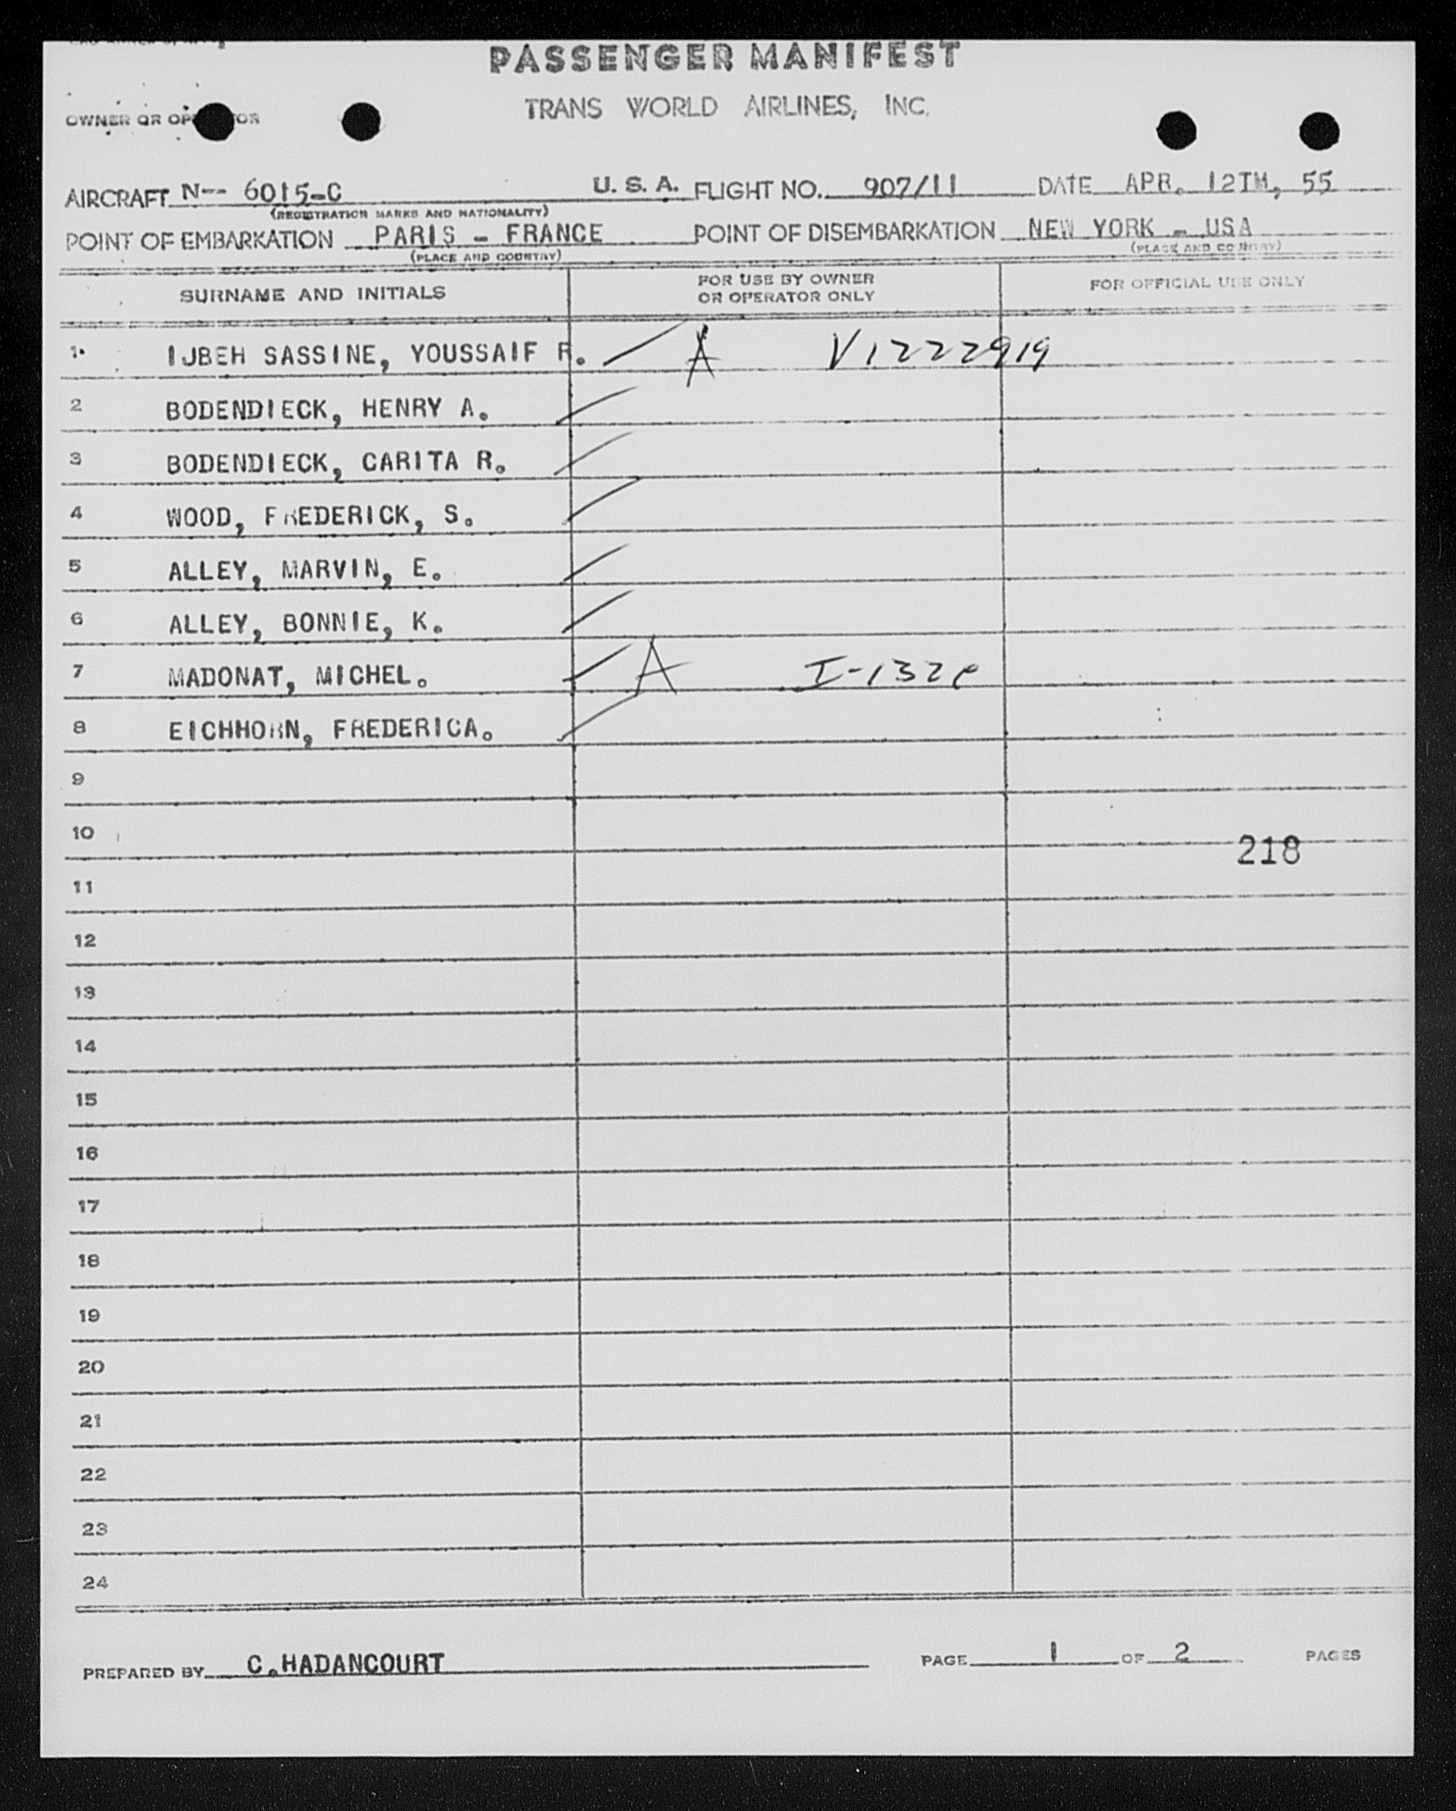 PASSENGER MANIFEST
TRANS WORLD AIRLINES, INC.
OWNER OR OPERATOR
AIRCRAFT N-- 6015-C U. S. A. FLIGHT NO. 907/11 DATE APR. 12TH, 55
(REGISTRATION MARKS AND NATIONALITY)
POINT OF EMBARKATION PARIS - FRANCE POINT OF DISEMBARKATION NEW YORK - USA
(PLACE AND COUNTRY) (PLACE AND COUNTRY)
SURNAME AND INITIALS FOR USE BY OWNER OR OPERATOR ONLY FOR OFFICIAL USE ONLY
1. IJBEH SASSINE, YOUSSAIF R. A V1222919
2 BODENDIECK, HENRY A.
3 BODENDIECK, CARITA R.
4 WOOD, FREDERICK, S.
5 ALLEY, MARVIN, E.
6 ALLEY, BONNIE, K.
7 MADONAT, MICHEL. A I-132
8 EICHHORN, FREDERICA.
9
10
218
11
12
13
14
15
16
17
18
19
20
21
22
23
24
PREPARED BY C.HADANCOURT PAGE 1 OF 2 PAGES